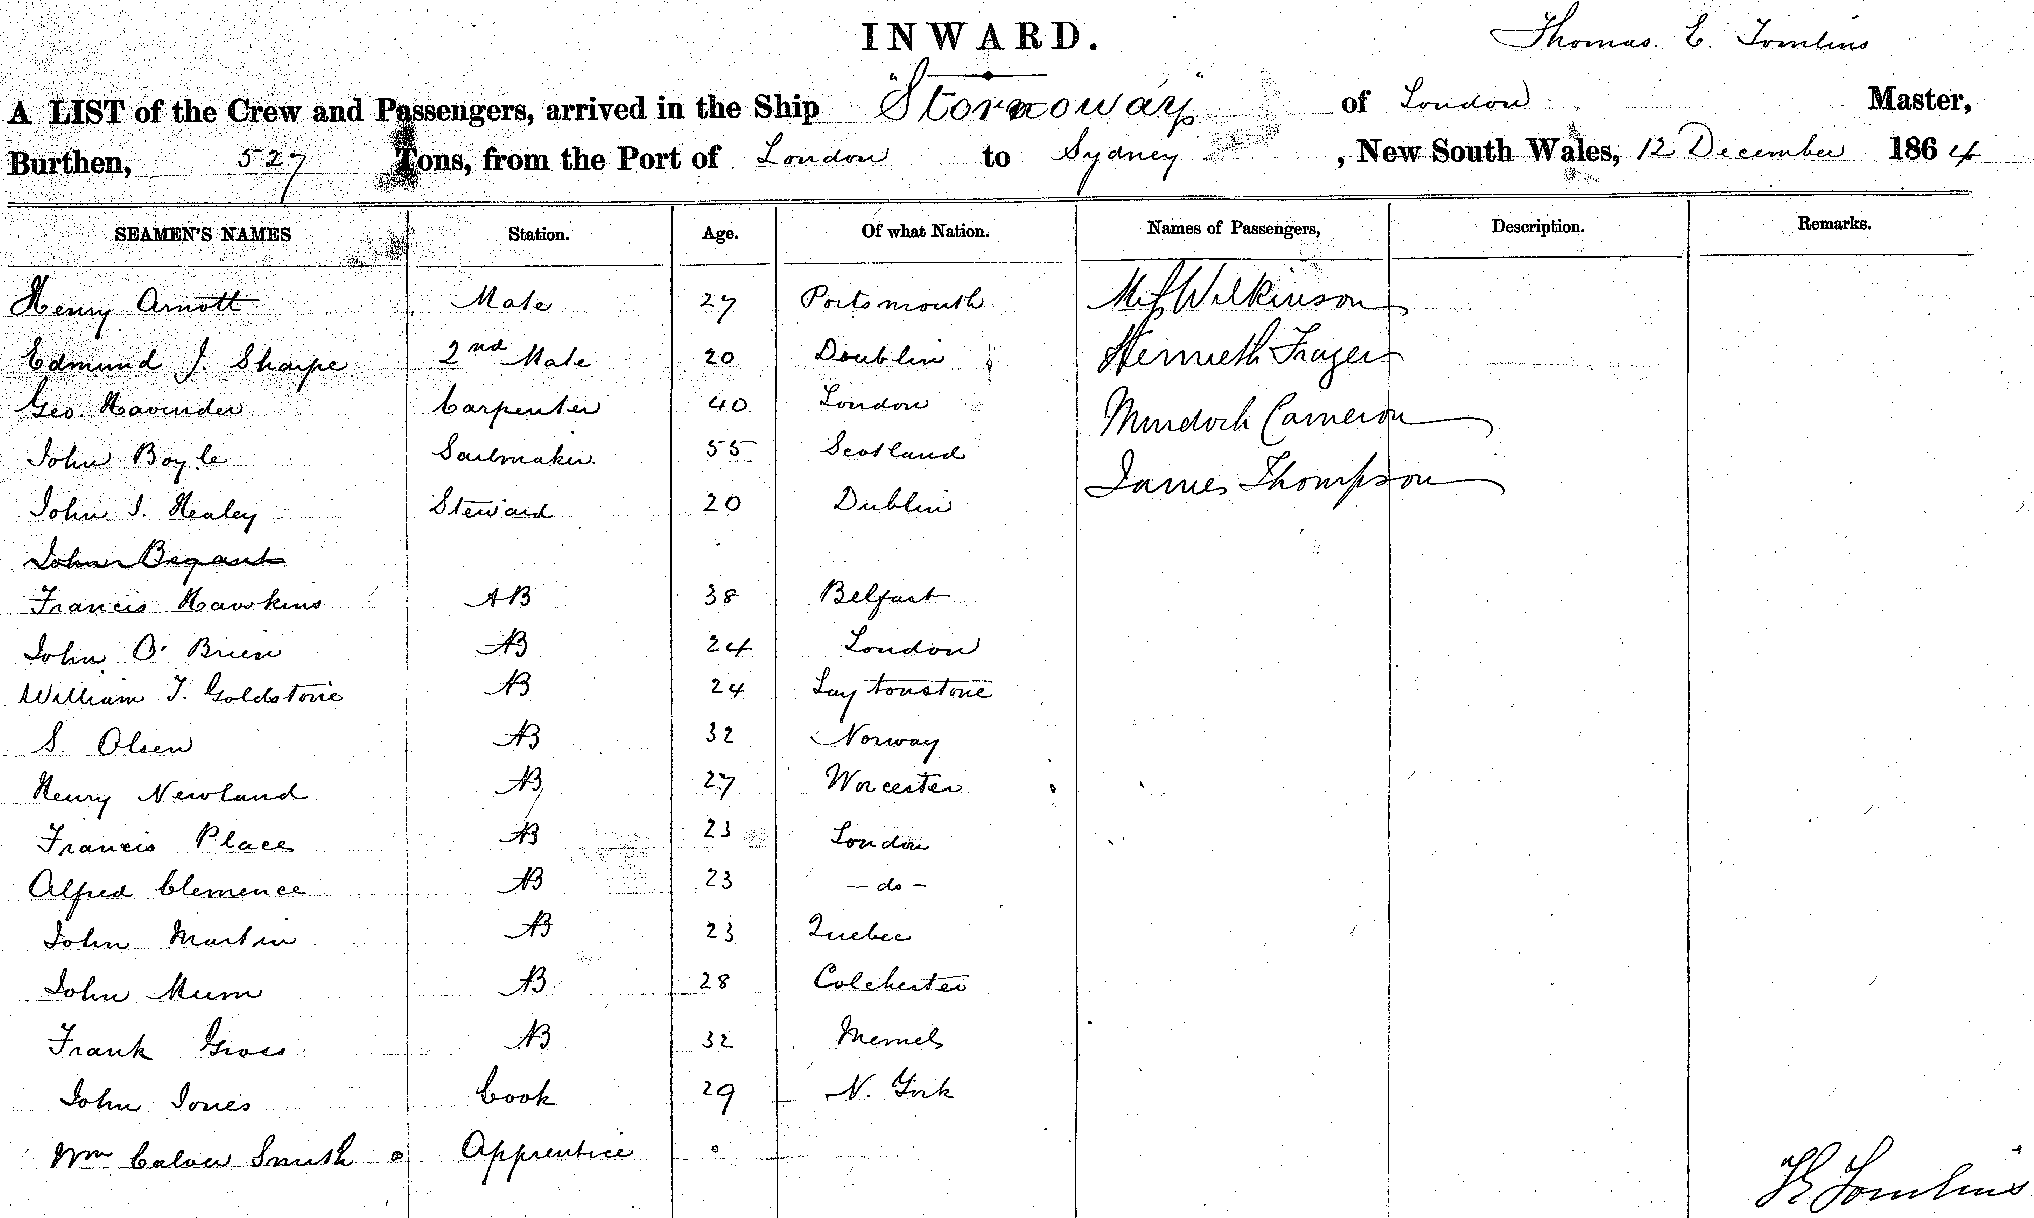 INWARD.
Thomas. E. Tomlins
A LIST of the Crew and Passengers, arrived in the Ship "Stornoway" of London Master,
Burthen, 527 Tons, from the Port of London to Sydney , New South Wales, 12 December 1864
SEAMEN'S NAMES Station. Age. Of what Nation. Names of Passengers, Description. Remarks.
Henry Arnott Mate 27 Portsmouth Miss Wilkinson
Edmund J. Sharpe 2nd Mate 20 Doublin Kenneth Frazer
Geo. Ravinder Carpenter 40 London Murdoch Cameron
John Boyle Sailmaker 55 Scotland James Thompson
John J. Healey Steward 20 Dublin
John
Francis Hawkins AB 38 Belfast
John O'Brien AB 24 London
William T. Goldstone AB 24 Laytonstone
S. Olsen AB 32 Norway
Henry Newland AB 27 Worcester
Francis Place AB 23 London
Alfred Clemence AB 23 - do -
John Martin AB 23 Quebec
John Mum AB 28 Colchester
Frank Gross AB 32 Memel
John Jones Cook 29 N. York
Wm Calver Smith Apprentice
TE Tomlins